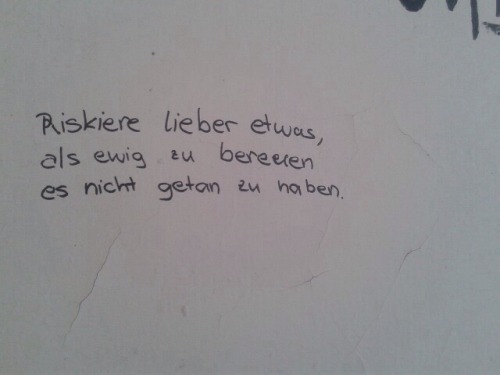 Riskiere lieber etwas,
als ewig zu bereuen
es nicht getan zu haben.